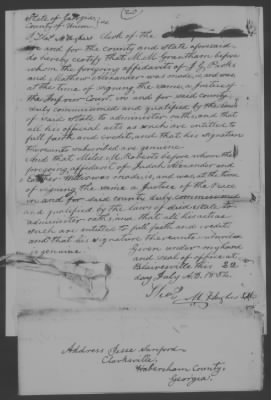 State of Georgia
County of Union
I Thos M Hughes Clerk of the
in and for the county and state aforesaid
do hereby certify that M. M. Grantham before
whom the foregoing affidavits of J. G. Parks
and Mathew Alexander was made, is, and was
at the time of signing the same, a justice of
the Inferior Court, in and for said county,
duly commissioned and qualified by the laws
of said State to administer oaths, and that
all his official acts as such are entitled to
full faith and credit, and that his signature
thereunto subscribed are genuine.
And that Miles M. Roberts before whom the
foregoing affidavit of Judah Alexander and
was made, is, and was, at the time
of signing the same a Justice of the Peace
in and for said county duly commissioned
and qualified by the laws of said state to
administer oaths, and that all his acts as
such are entitled to full faith and credit
and that his signature thereunto
is genuine.
Given under my hand
and seal of office at
Blairsville this 22
day July A.D. 1852.
Thos M Hughes
Address Jesse Sanford
Clarksville,
Habersham County,
Georgia.